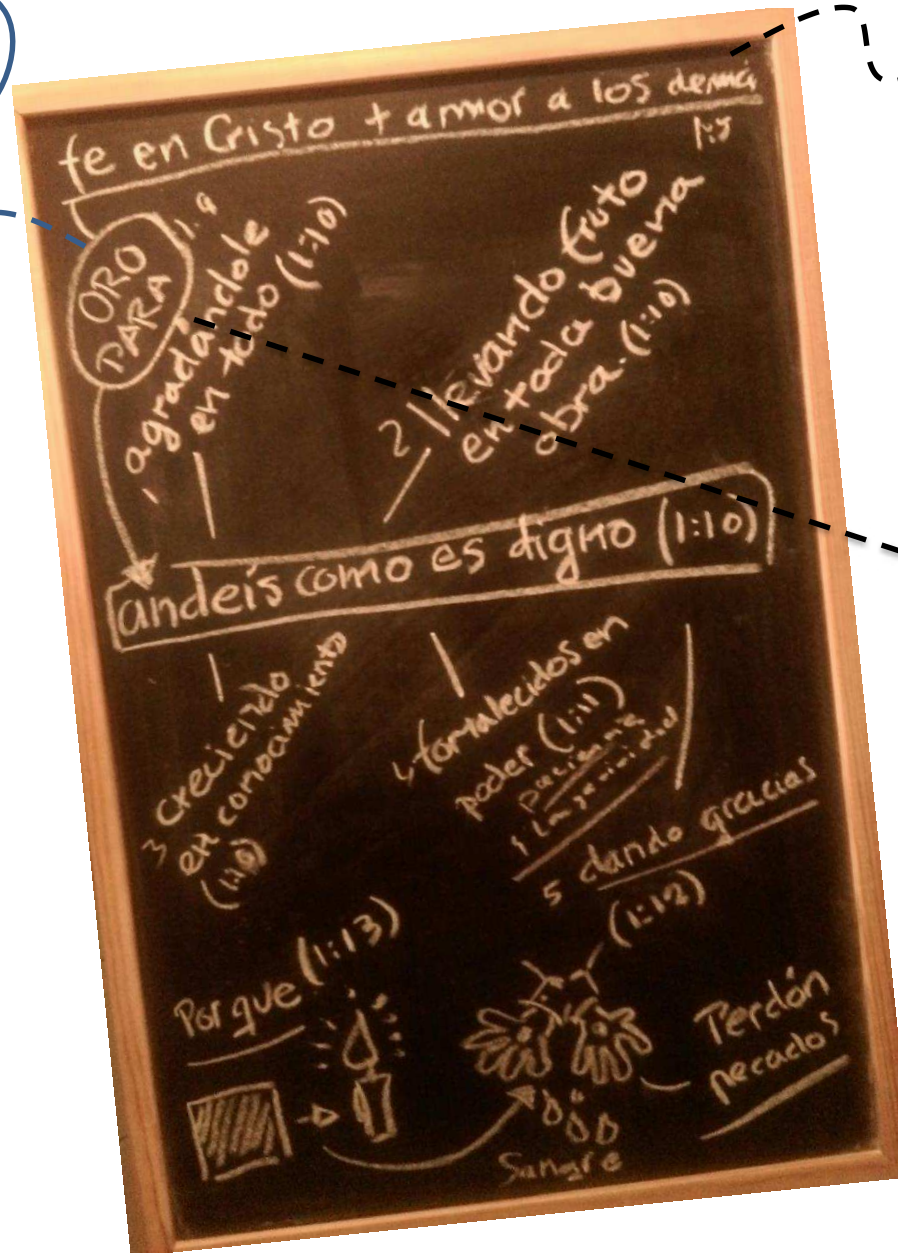 fe en Cristo + amor a los demás
ORO
PARA
1:9
1 agradándole
en todo (1:10)
2 llevando fruto
en toda buena
obra. (1:10)
andeis como es digno (1:10)
3 creciendo
en conocimiento
(1:10)
4 fortalecidos en
poder (1:11)
paciencia
y longanimidad
5 dando gracias
(1:12)
Porque (1:13)
Perdón
pecados
Sangre